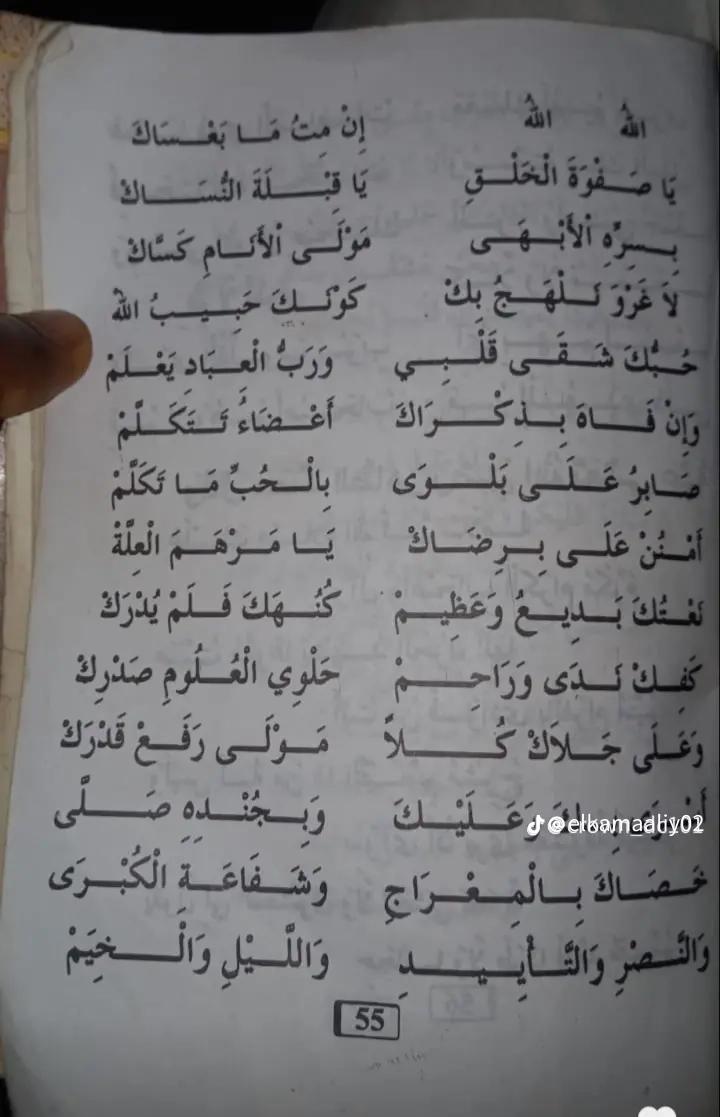 اللهُ اللهُ إِنْ مِتُ مَا بَعْسَاكَ
يَا صَفْوَةَ الْخَلْقِ يَا قِبْلَةَ النُّسَاكْ
بِسِرِّهِ اْلأَبْهَى مَوْلَى اْلأَنَامِ كَسَّاكْ
لاَ غَرْوَ نَلْهَجُ بِكْ كَوْنَكَ حَبِيبُ الله
حُبُّكَ شَقَى قَلْبِي وَرَبُّ الْعِبَادِ يَعْلَمْ
وَإِنْ فَاهَ بِذِكْرَاكَ أَعْضَاءُ تَتَكَلَّمْ
صَابِرُ عَلَى بَلْوَى بِالْحُبِّ مَا تَكَلَّمْ
أَمْنُنْ عَلَى بِرِضَاكْ يَا مَرْهَمَ الْعِلَّةْ
نَعْتُكَ بَدِيعُ وَعَظِيمْ كُنْهَكَ فَلَمْ يُدْرَكْ
كَفِكْ نَدَى وَرَاحِمْ حَلْوِي الْعُلُومِ صَدْرِكْ
وَعَلَى جَلاَكْ كُلاًّ مَوْلَى رَفَعْ قَدْرَكْ
وَعَلَيْكَ وَبِجُنْدِهِ صَلَّى
@elkamadliy02
خَصَاكَ بِالْمِعْرَاجِ وَشَفَاعَةِ الْكُبْرَى
وَالنَّصْرِ وَالتَّأْيِيدِ وَاللَّيْلِ وَالْخِيَمْ
55